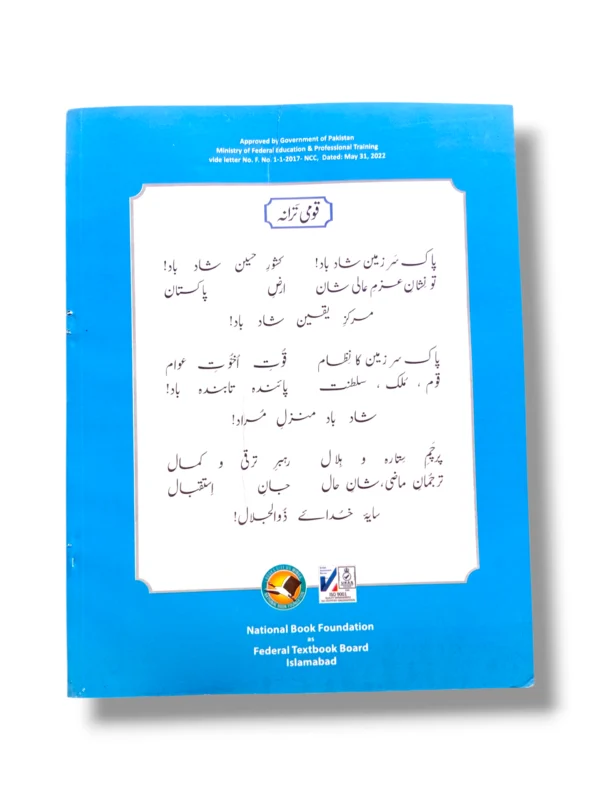 Approved by Government of Pakistan
Ministry of Federal Education & Professional Training
vide letter No. F. No. 1-1-2017- NCC, Dated: May 31, 2022
قومی ترانہ
پاک سَرزمین شاد باد! کشورِ حسین شاد باد!
تو نشانِ عزمِ عالی شان ارضِ پاکستان
مرکزِ یقین شاد باد!
پاک سرزمین کا نظام قوّتِ اُخوّتِ عوام
قوم ، مُلک ، سلطنت پائندہ تابندہ باد!
شاد باد منزلِ مُراد!
پرچمِ ستارہ و ہلال رہبرِ ترقی و کمال
ترجُمانِ ماضی، شانِ حال جانِ اِستقبال
سایۂ خُدائے ذُوالجلال!
National Book Foundation
as
Federal Textbook Board
Islamabad